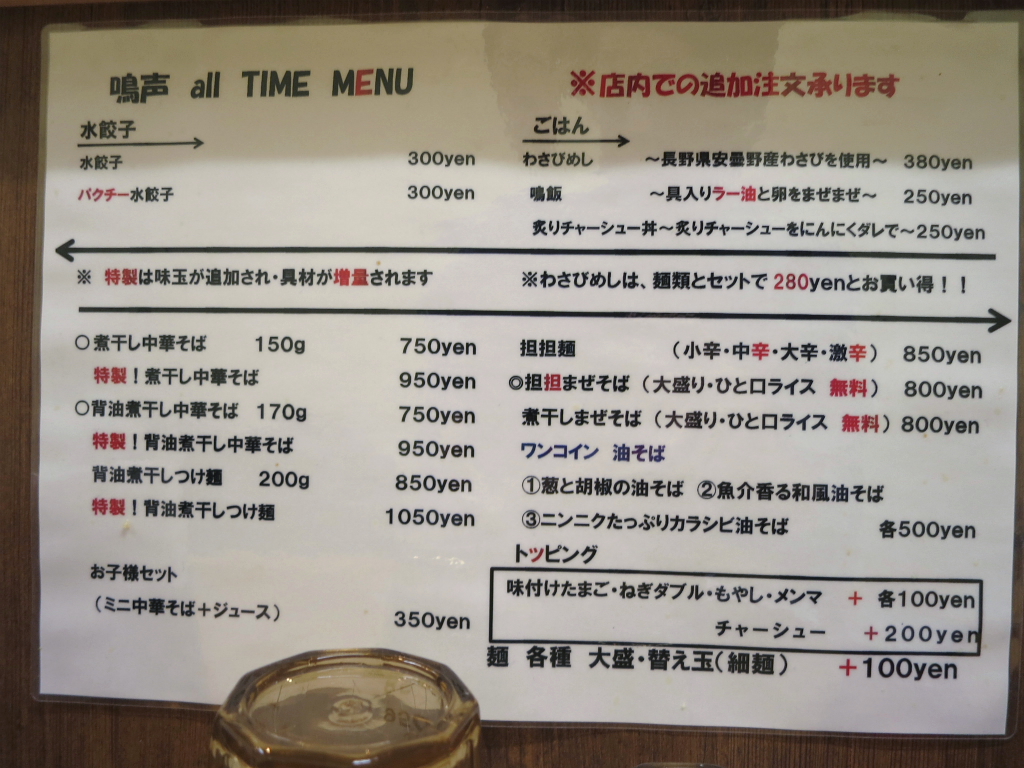 鳴声 all TIME MENU
※店内での追加注文承ります
水餃子
水餃子 300yen
パクチー水餃子 300yen
ごはん
わさびめし ～長野県安曇野産わさびを使用～ 380yen
鳴飯 ～具入りラー油と卵をまぜまぜ～ 250yen
炙りチャーシュー丼～炙りチャーシューをにんにくダレで～250yen
※ 特製は味玉が追加され・具材が増量されます
※わさびめしは、麺類とセットで 280yenとお買い得！！
○煮干し中華そば 150g 750yen
特製！煮干し中華そば 950yen
○背油煮干し中華そば 170g 750yen
特製！背油煮干し中華そば 950yen
背油煮干しつけ麺 200g 850yen
特製！背油煮干しつけ麺 1050yen
お子様セット
（ミニ中華そば＋ジュース） 350yen
担担麺 （小辛・中辛・大辛・激辛） 850yen
◎担担まぜそば （大盛り・ひと口ライス 無料） 800yen
煮干しまぜそば （大盛り・ひと口ライス 無料） 800yen
ワンコイン 油そば
①葱と胡椒の油そば ②魚介香る和風油そば
③ニンニクたっぷりカラシビ油そば 各500yen
トッピング
味付けたまご・ねぎダブル・もやし・メンマ ＋ 各100yen
チャーシュー ＋200yen
麺 各種 大盛・替え玉（細麺） ＋100yen